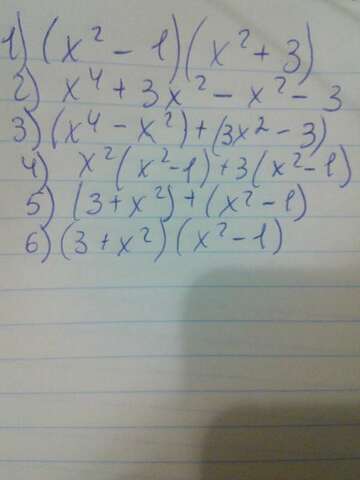 1) (x² - 1)(x² + 3)
2) x⁴ + 3x² - x² - 3
3) (x⁴ - x²) + (3x² - 3)
4) x²(x²-1)+3(x²-1)
5) (3+x²)+(x²-1)
6) (3+x²)(x²-1)